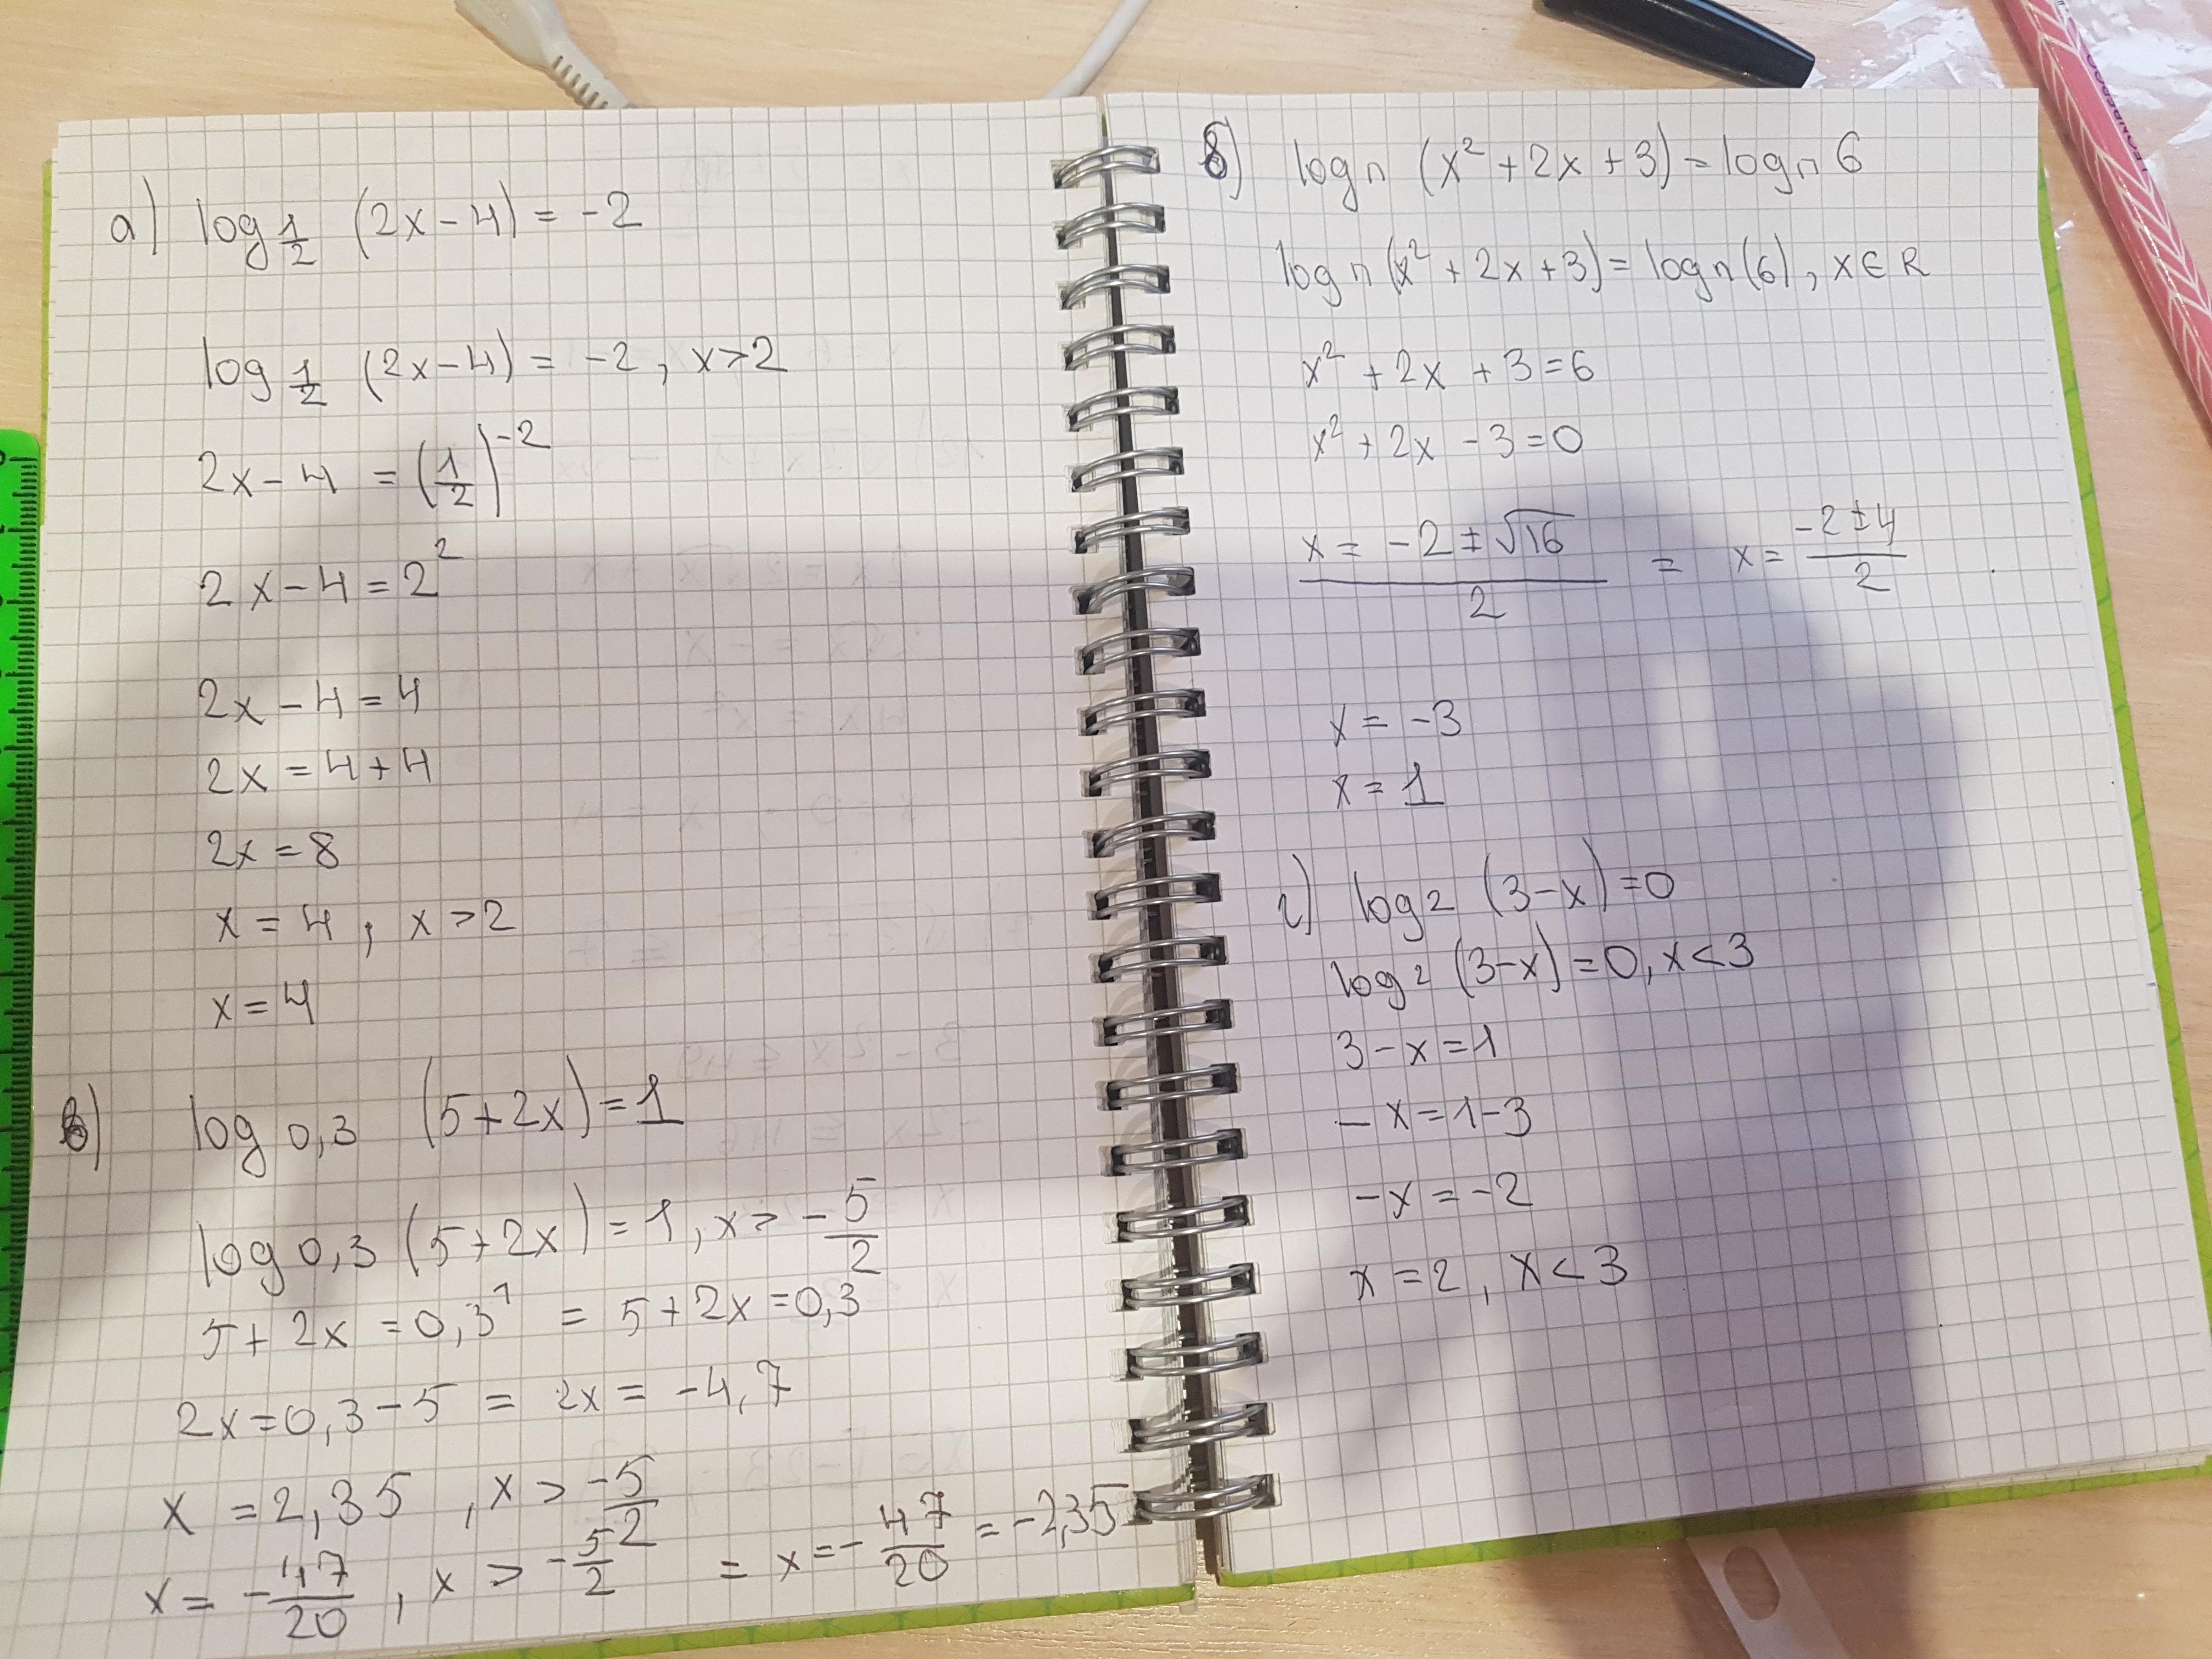 а) log 1/2 (2x-4) = -2
log 1/2 (2x-4) = -2, x>2
2x-4 = (1/2)^-2
2x-4=2^2
2x-4=4
2x=4+4
2x=8
x=4, x>2
x=4
в) log 0,3 (5+2x)=1
log 0,3 (5+2x)=1, x> -5/2
5+2x=0,3^1 = 5+2x=0,3
2x=0,3-5 = 2x= -4,7
x =2,35, x> -5/2
x= -47/20, x> -5/2 = x=-47/20 =-2,35
б) log п (x^2+2x+3)=log п 6
log п (x^2+2x+3)=log п (6), x∈R
x^2+2x+3=6
x^2+2x-3=0
x= -2±√16/2 = x= -2±4/2
x= -3
x= 1
г) log 2 (3-x)=0
log 2 (3-x)=0, x<3
3-x=1
-x=1-3
-x=-2
x=2, x<3